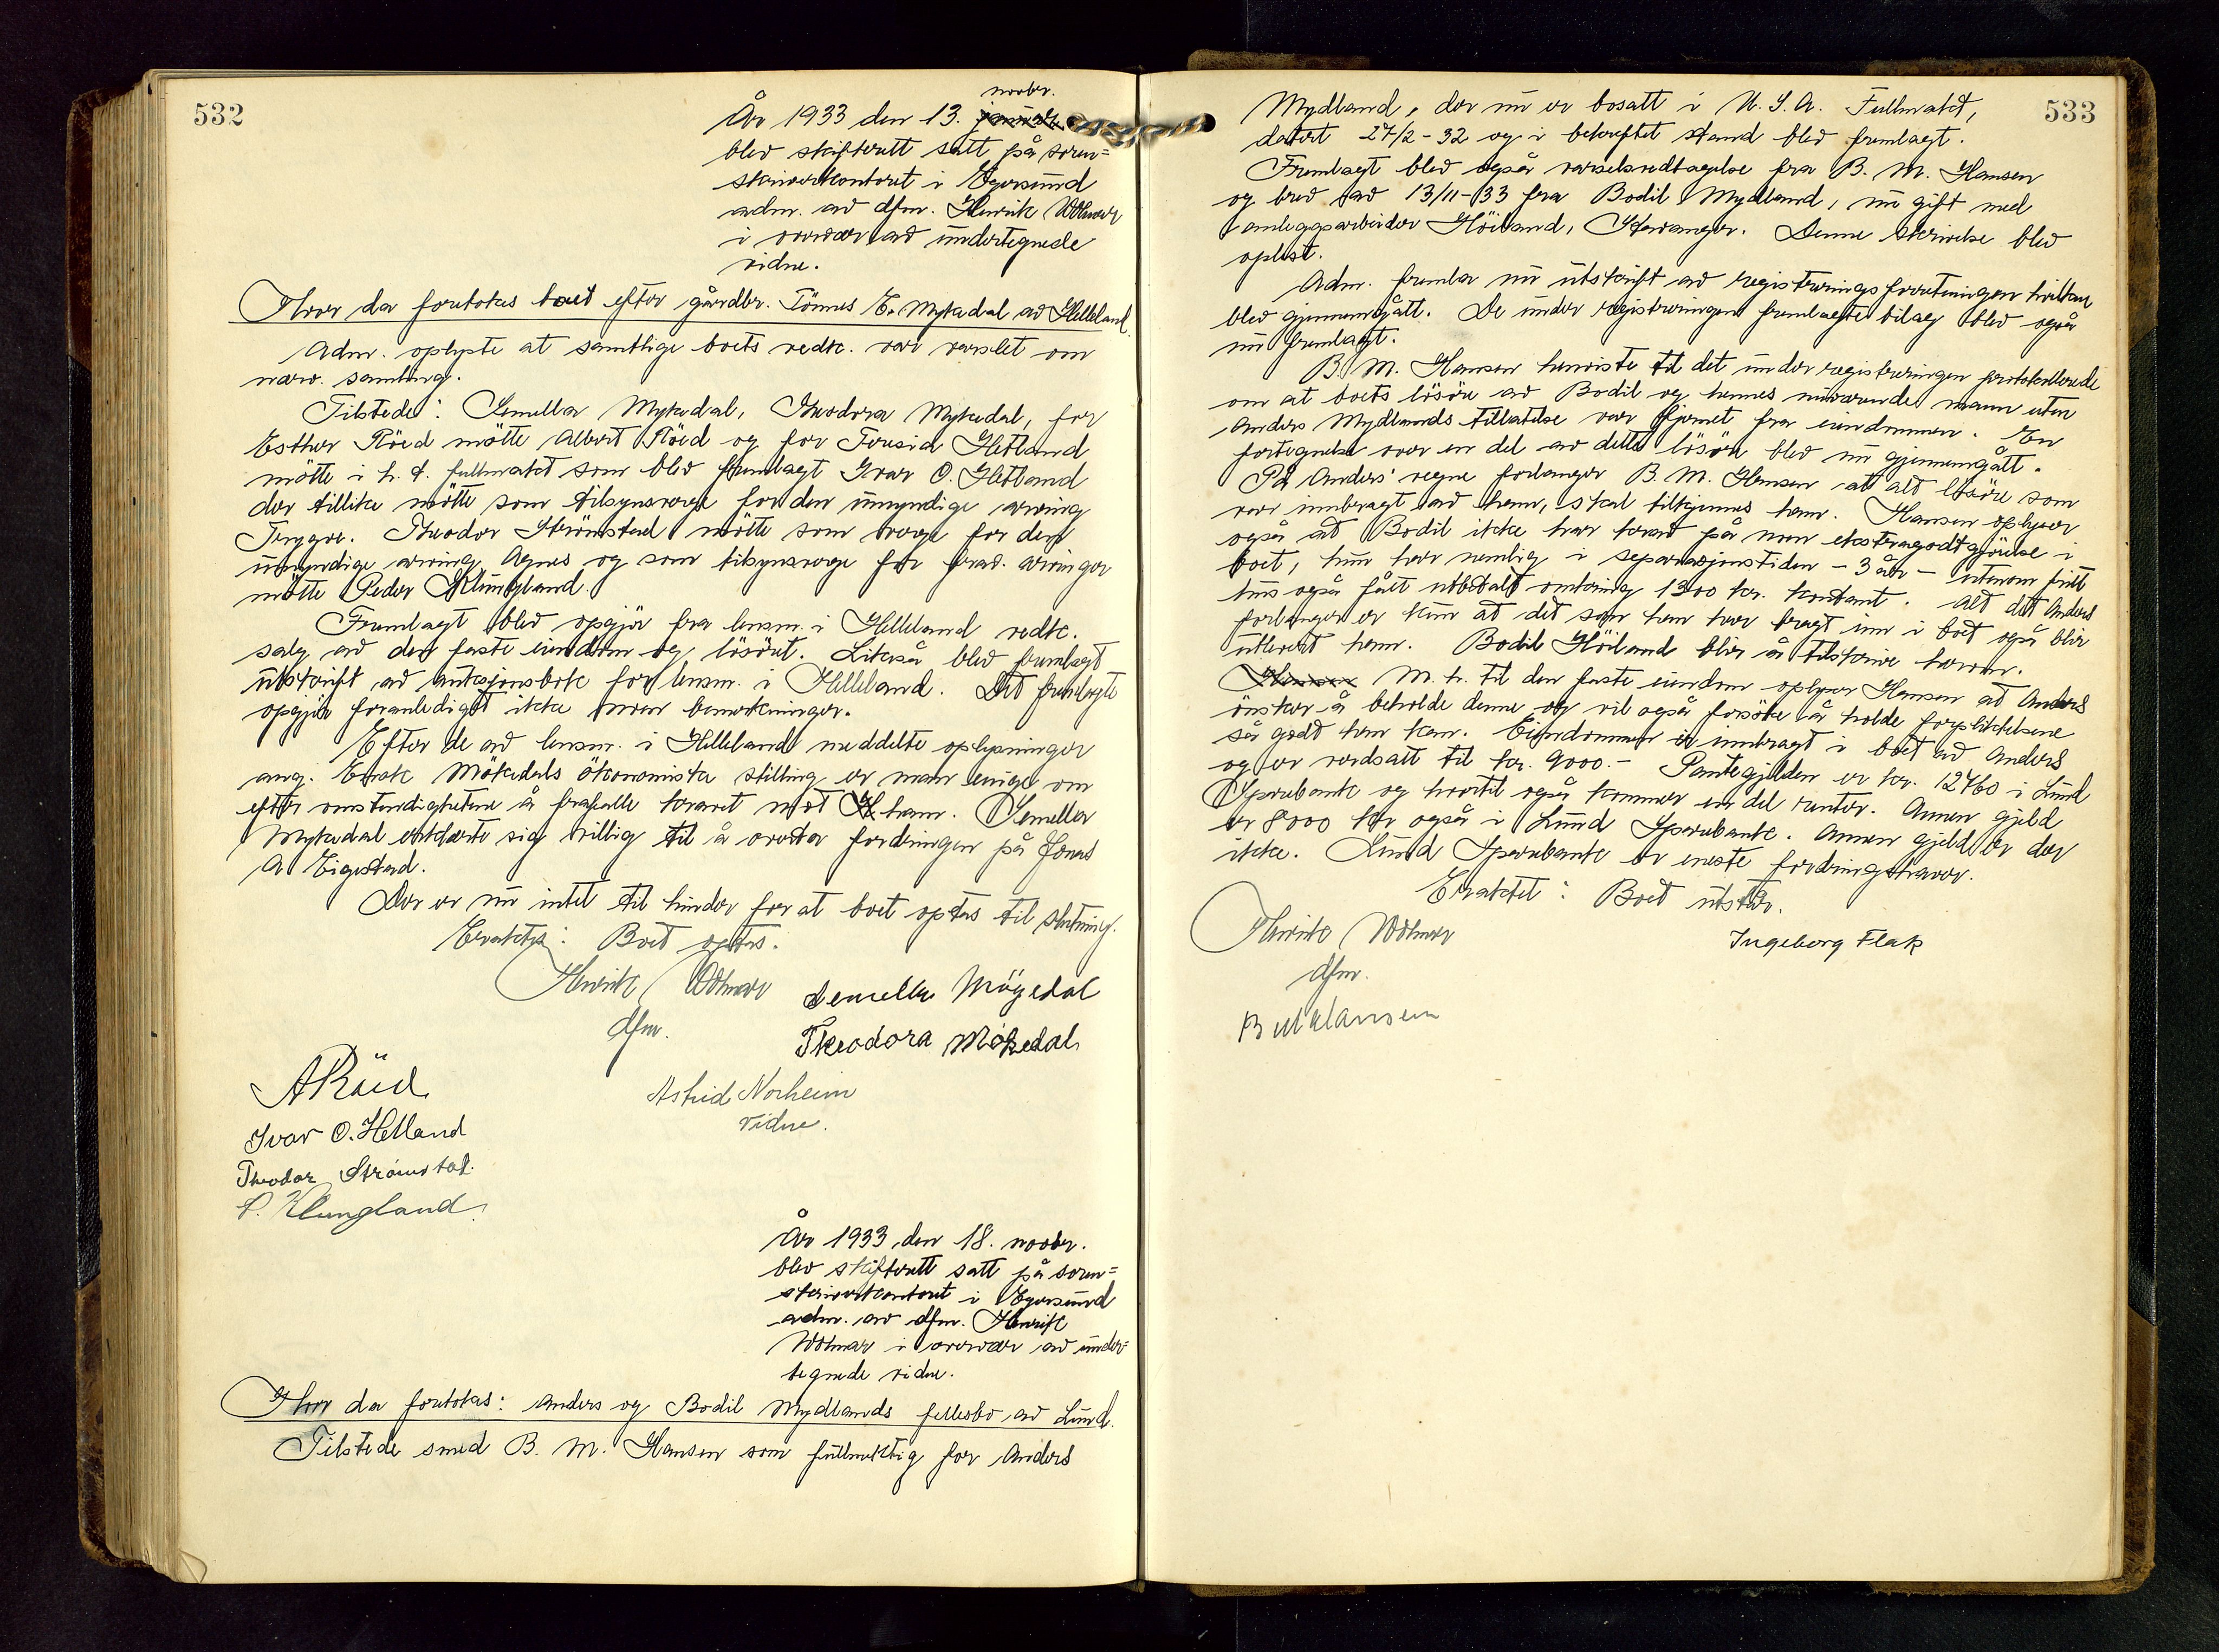 532
noobr.
År 1933 den 13.
blev skifterett satt på soren=
skriverkontoret i Egersund
adm. av dfm. Henrik Wolmar
i overvær av undertegnede
vidne.
Hvor da foretokes boet efter gårdbr. Tönnes E. Mykedal av Helleland.
Adm. oplyste at samtlige boets vedk. var varslet om
nærv. samling.
Tilstede: Semella Mykedal, Theodora Mykedal, for
Esther Röed mötte Albert Röed og for Hetland
mötte i h. t. fullmakt som blev fremlagt Ivar O. Hetland
der tillike mötte som tilsynsverge for den umyndige arving
Trygve. Theodor Strömstad mötte som verge for den
umyndige arving Agnes og som tilsynsverge for arvinger
mötte Peder Klungland.
Fremlagt blev opgjör fra lensm. i Helleland vedk.
salg av den faste eiendom og lösöret. Likeså blev fremlagt
utskrift av auksjonsbok for lensm. i Helleland. Det fremlagte
opgjör foranlediget ikke noen bemerkninger.
Efter de av lensm. i Helleland meddelte oplysninger
ang. Enok Mökedals ökonomiske stilling er man enige om
efter omstendighetene å frafalle kravet mot ham. Semella
Mykedal erklærte sig villig til å overta fordringen på Jonas
A Eigestad.
Der er nu intet til hinder for at boet optas til slutning.
Eraktes: Boet optas.
Henrik Wolmar
dfm.
Semella Mögedal
Theodora Mökedal
A Röed
Astrid Norheim
vidne.
Ivar O. Hetland
Theodor Strömstad.
P. Klungland.
År 1933 den 18. noobr.
blev skifterett satt på soren=
skriverkontoret i Egersund
adm. av dfm. Henrik
Wolmar i overvær av under=
tegnede vidne.
Hvor da foretokes: Anders og Bodil Mydlands fellesbo av Lund.
Tilstede smed B. M. Hansen som fullmektig for Anders
533
Mydland, der nu er bosatt i U. S. A. Fullmakt,
datert 27/2 - 32 og i bekreftet stand blev fremlagt.
Fremlagt blev også varselsvedtagelse fra B. M. Hansen
og brev av 13/11-33 fra Bodil Mydland, nu gift med
anleggsarbeider Höiland, Stavanger. Denne skrivelse blev
oplest.
Adm. fremla nu utskrift av registreringsforretningen hvilken
blev gjennemgått. De under registreringen fremlagte bilag blev også
nu fremlagt.
B. M. Hansen henviste til det under registreringen protokollerede
om at boets lösöre av Bodil og hennes nuværende mann uten
Anders Mydlands tillatelse var fjernet fra eiendommen. En
fortegnelse over en del av dette lösöre blev nu gjennemgått.
På Anders' vegne forlanger B. M. Hansen at alt lösöre som
var innbragt av ham, skal tilkjennes ham. Hansen oplyser
også at Bodil ikke har krav på noen ekstragodtgjörelse i
boet, hun har nemlig i separasjonstiden - 3 år - utenom fritt
hus også fått utbetalt omkring 1300 kr. kontant. Alt det Anders
forlanger er kun at det som han har bragt inn i boet også blir
utlevert ham. Bodil Höiland blir å tilskrive herom.
M. h. til den faste eiendom oplyser Hansen at Anders
önsker å beholde denne og vil også forsöke å holde forpliktelsene
så godt han kan. Eiendommen er innbragt i boet av Anders
og er verdsatt til kr. 9000.- Pantegjelden er kr. 12760 i Lund
Sparebank og hvortil også kommer en del renter. Annen gjeld
er 8000 kr også i Lund Sparebank. Annen gjeld er der
ikke. Lund Sparebank er eneste fordringshaver.
Eraktet: Boet utstår.
Henrik Wolmar
dfm.
Ingeborg Flak
B M Hansen